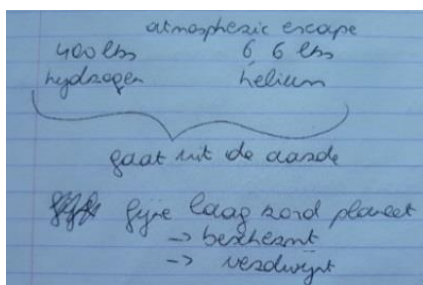 atmospheric escape
400 lbs 6 6 lbs
hydrogen helium
gaat uit de aarde
fijne laag rond planeet
-> beschermt
-> verdwijnt